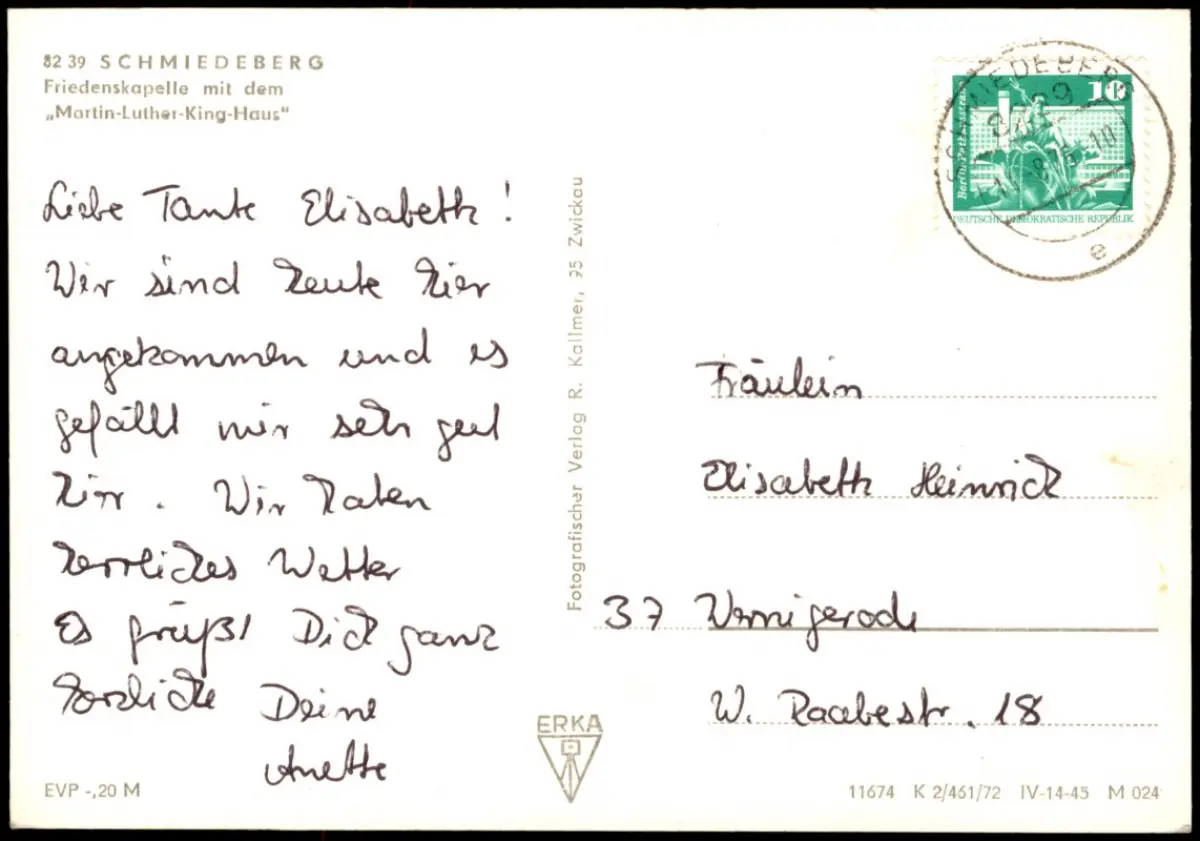 82 39 SCHMIEDEBERG
Friedenskapelle mit dem
„Martin-Luther-King-Haus"
Liebe Tante Elisabeth!
Wir sind heute hier
angekommen und es
gefällt mir sehr gut
hier. Wir haben
herrliches Wetter
Es grüßt Dich ganz
herzlich Deine
Anette
EVP -,20 M
Fotografischer Verlag R. Kallmer, 95 Zwickau
ERKA
SCHMIEDEBERG
8239
e
10
Berlin-Rathausstraße
DEUTSCHE DEMOKRATISCHE REPUBLIK
Fräulein
Elisabeth Heinrich
37 Wernigerode
W. Raabestr. 18
11674 K 2/461/72 IV-14-45 M 024